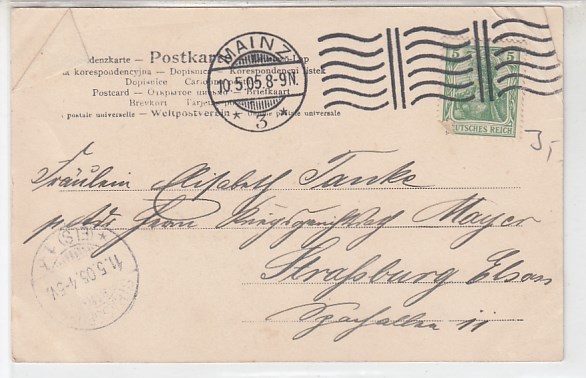 denzkarte – Postkart
korespondencyjna – Dopisnice – Korespondenční lístek
Dopisnice –
Postcard – Открытое – Briefkaart
Brevkort – Tarjeta
postale universelle – Weltpostverein – postale universale
MAINZ
10.5.05.8-9N.
* 3 *
5 5
DEUTSCHES REICH
3,-
Fräulein Elisabeth Tanke
Herrn Mayer
Straßburg Elsass
11
(ELS) 1
11.5.05.4-5